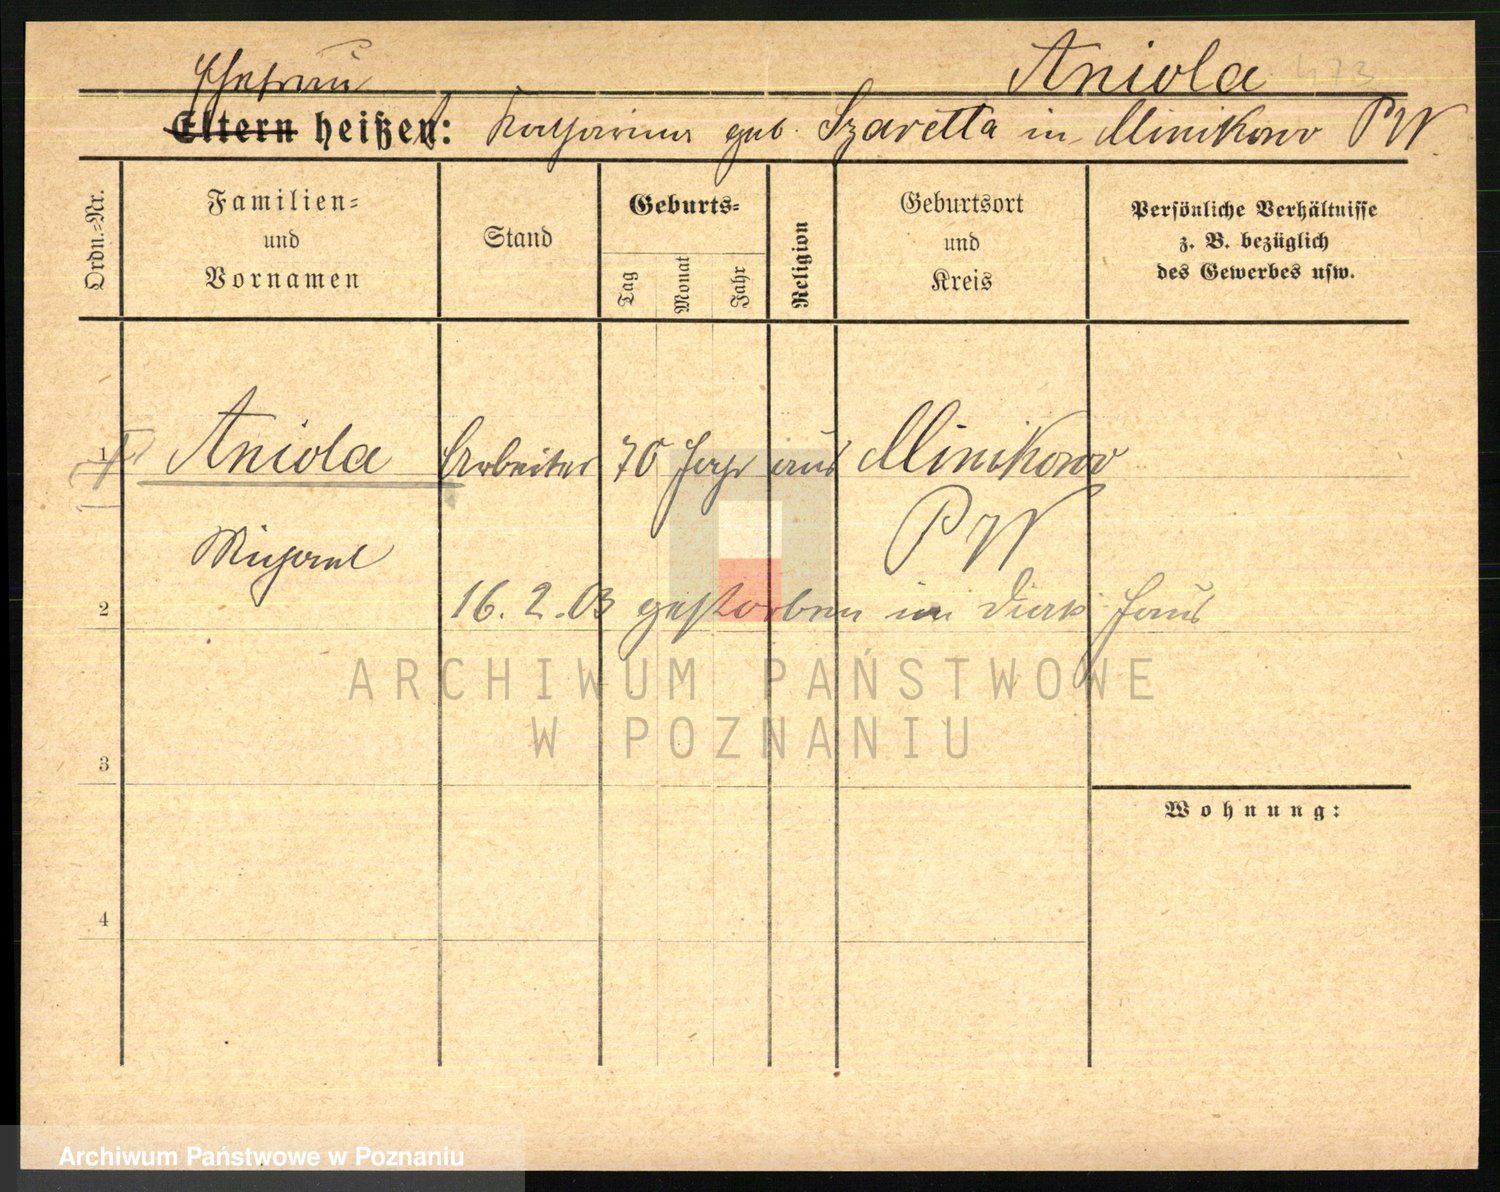 Ehefrau Aniola 473
Eltern heißen: Katharina geb. Szaretta in Minikowo PW
Ordn.-Nr.
Familien-
und
Vornamen
Stand
Geburts-
Tag
Monat
Jahr
Religion
Geburtsort
und
Kreis
Persönliche Verhältnisse
z. B. bezüglich
des Gewerbes usw.
1 Aniola Arbeiter 70 Jahr aus Minikowo
PW
Michael
2 16.2.03 gestorben im Diak. Haus
ARCHIWUM PAŃSTWOWE
W POZNANIU
3
Wohnung:
4
Archiwum Państwowe w Poznaniu